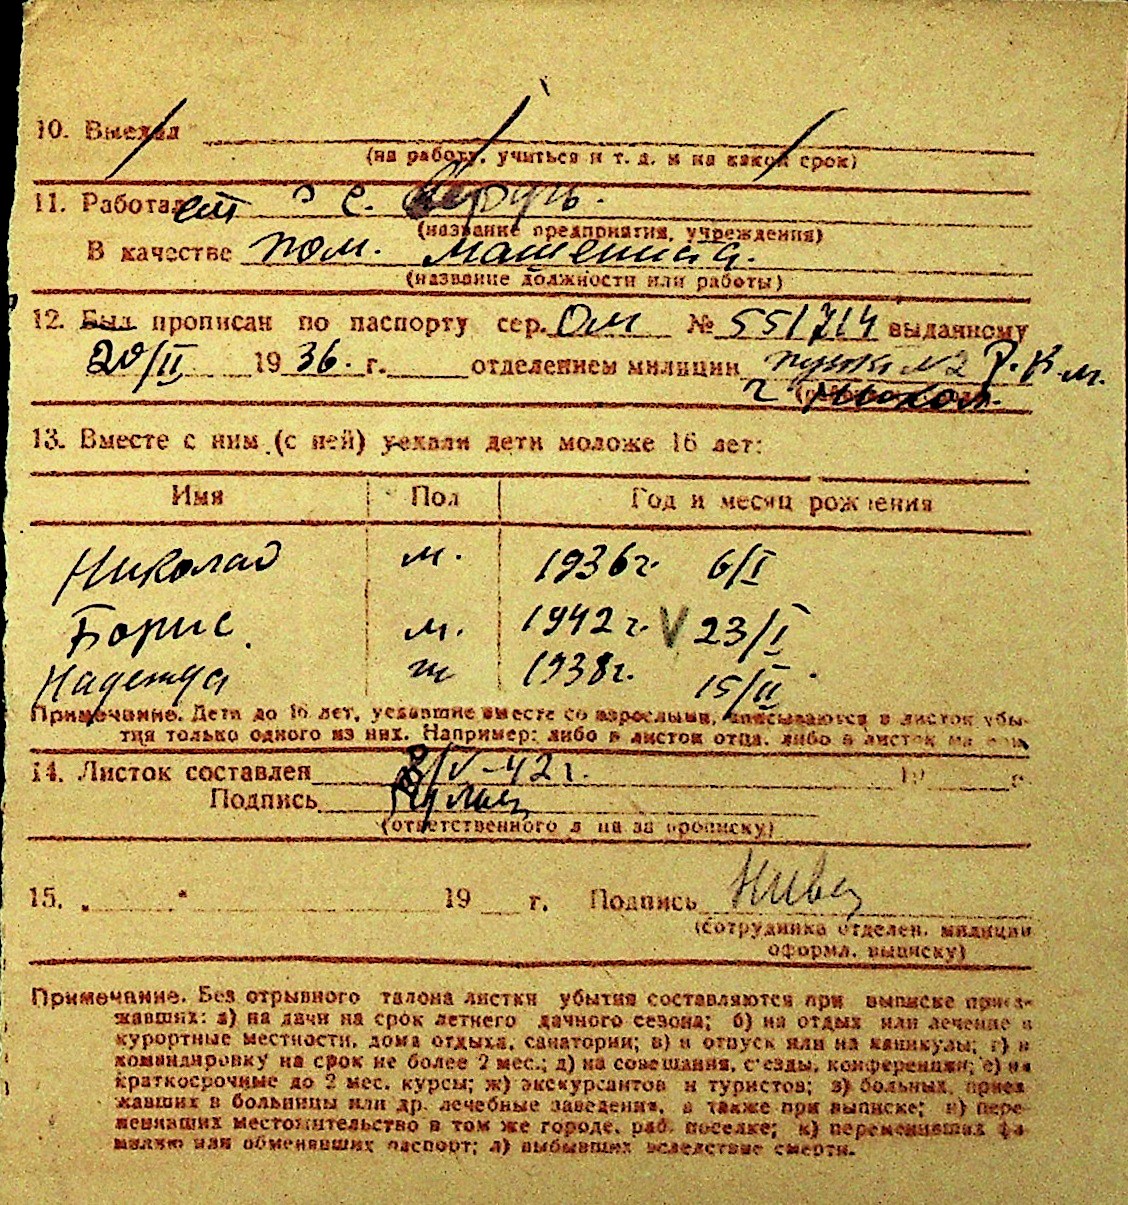 10. Выехал
(на работу, учиться и т. д. и на какой срок)
11. Работал
(название предприятия, учреждения)
В качестве пом. машениста.
(название должности или работы)
12. Был прописан по паспорту сер. ОМ № 551714 выданному
20/II 1936. г. отделением милиции пункт №2 Р.К.М.
г.
13. Вместе с ним (с ней) уехали дети моложе 16 лет:
Имя Пол Год и месяц рождения
Николай м. 1936г. 6/I
Борис. м. 1942г. V 23/I
Надежда ж 1938г. 15/II
Примечание. Дети до 16 лет, уехавшие вместе со взрослыми, вписываются в листок убы-
тия только одного из них. Например: либо в листок отца, либо в листок матери.
14. Листок составлен /IV-42г. 19 г.
Подпись
(ответственного лица за прописку)
15. „ " 19 г. Подпись
(сотрудника отделен. милиции
оформл. выписку)
Примечание. Без отрывного талона листки убытия составляются при выписке приез-
жавших: а) на дачи на срок летнего дачного сезона; б) на отдых или лечение в
курортные местности, дома отдыха, санатории; в) в отпуск или на каникулы; г) в
командировку на срок не более 2 мес.; д) на совещания, съезды, конференции; е) на
краткосрочные до 2 мес. курсы; ж) экскурсантов и туристов; з) больных, приез-
жавших в больницы или др. лечебные заведения, а также при выписке; и) пере-
менивших местожительство в том же городе, раб. поселке; к) переменивших фа-
милию или обменявших паспорт; л) выбывших вследствие смерти.